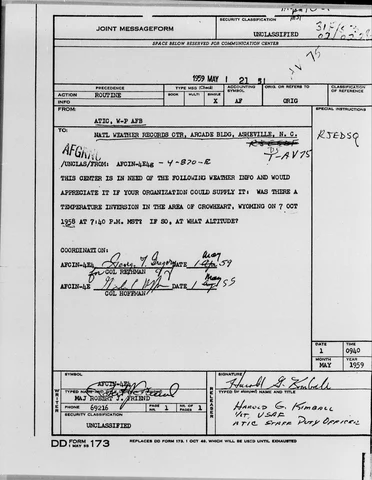 JOINT MESSAGEFORM
SECURITY CLASSIFICATION
UNCLASSIFIED
SPACE BELOW RESERVED FOR COMMUNICATION CENTER
1959 MAY 1 21 51
PRECEDENCE
TYPE MSG (Check)
ACCOUNTING SYMBOL
ORIG. OR REFERS TO
CLASSIFICATION OF REFERENCE
ACTION
ROUTINE
BOOK
MULTI
SINGLE
INFO
X
AF
ORIG
FROM:
SPECIAL INSTRUCTIONS
ATIC, W-P AFB
TO:
NATL WEATHER RECORDS CTR, ARCADE BLDG, ASHEVILLE, N. C.
RJEDSQ
T-AV75
/UNCLAS/FROM: AFCIN-4E4g - 4-870-E
THIS CENTER IS IN NEED OF THE FOLLOWING WEATHER INFO AND WOULD
APPRECIATE IT IF YOUR ORGANIZATION COULD SUPPLY IT: WAS THERE A
TEMPERATURE INVERSION IN THE AREA OF CROWHEART, WYOMING ON 7 OCT
1958 AT 7:40 P.M. MST? IF SO, AT WHAT ALTITUDE?
COORDINATION:
AFCIN-4E4 George T. Gregory DATE 1 May 59
for COL RETHMAN
AFCIN-4E DATE 1 May 59
COL HOFFMAN
DATE
TIME
1
0940
MONTH
YEAR
MAY
1959
SYMBOL
AFCIN-4E4
SIGNATURE
Harold G. Kimball
WRITER
TYPED NAME
MAJ ROBERT J. FRIEND
RELEASER
TYPED NAME AND TITLE
PHONE
69216
PAGE NR.
1
NR. OF PAGES
1
HAROLD G. KIMBALL
1/LT. USAF
ATIC STAFF DUTY OFFICER
SECURITY CLASSIFICATION
UNCLASSIFIED
DD FORM 173
1 MAY 55
REPLACES DD FORM 173, 1 OCT 49, WHICH WILL BE USED UNTIL EXHAUSTED